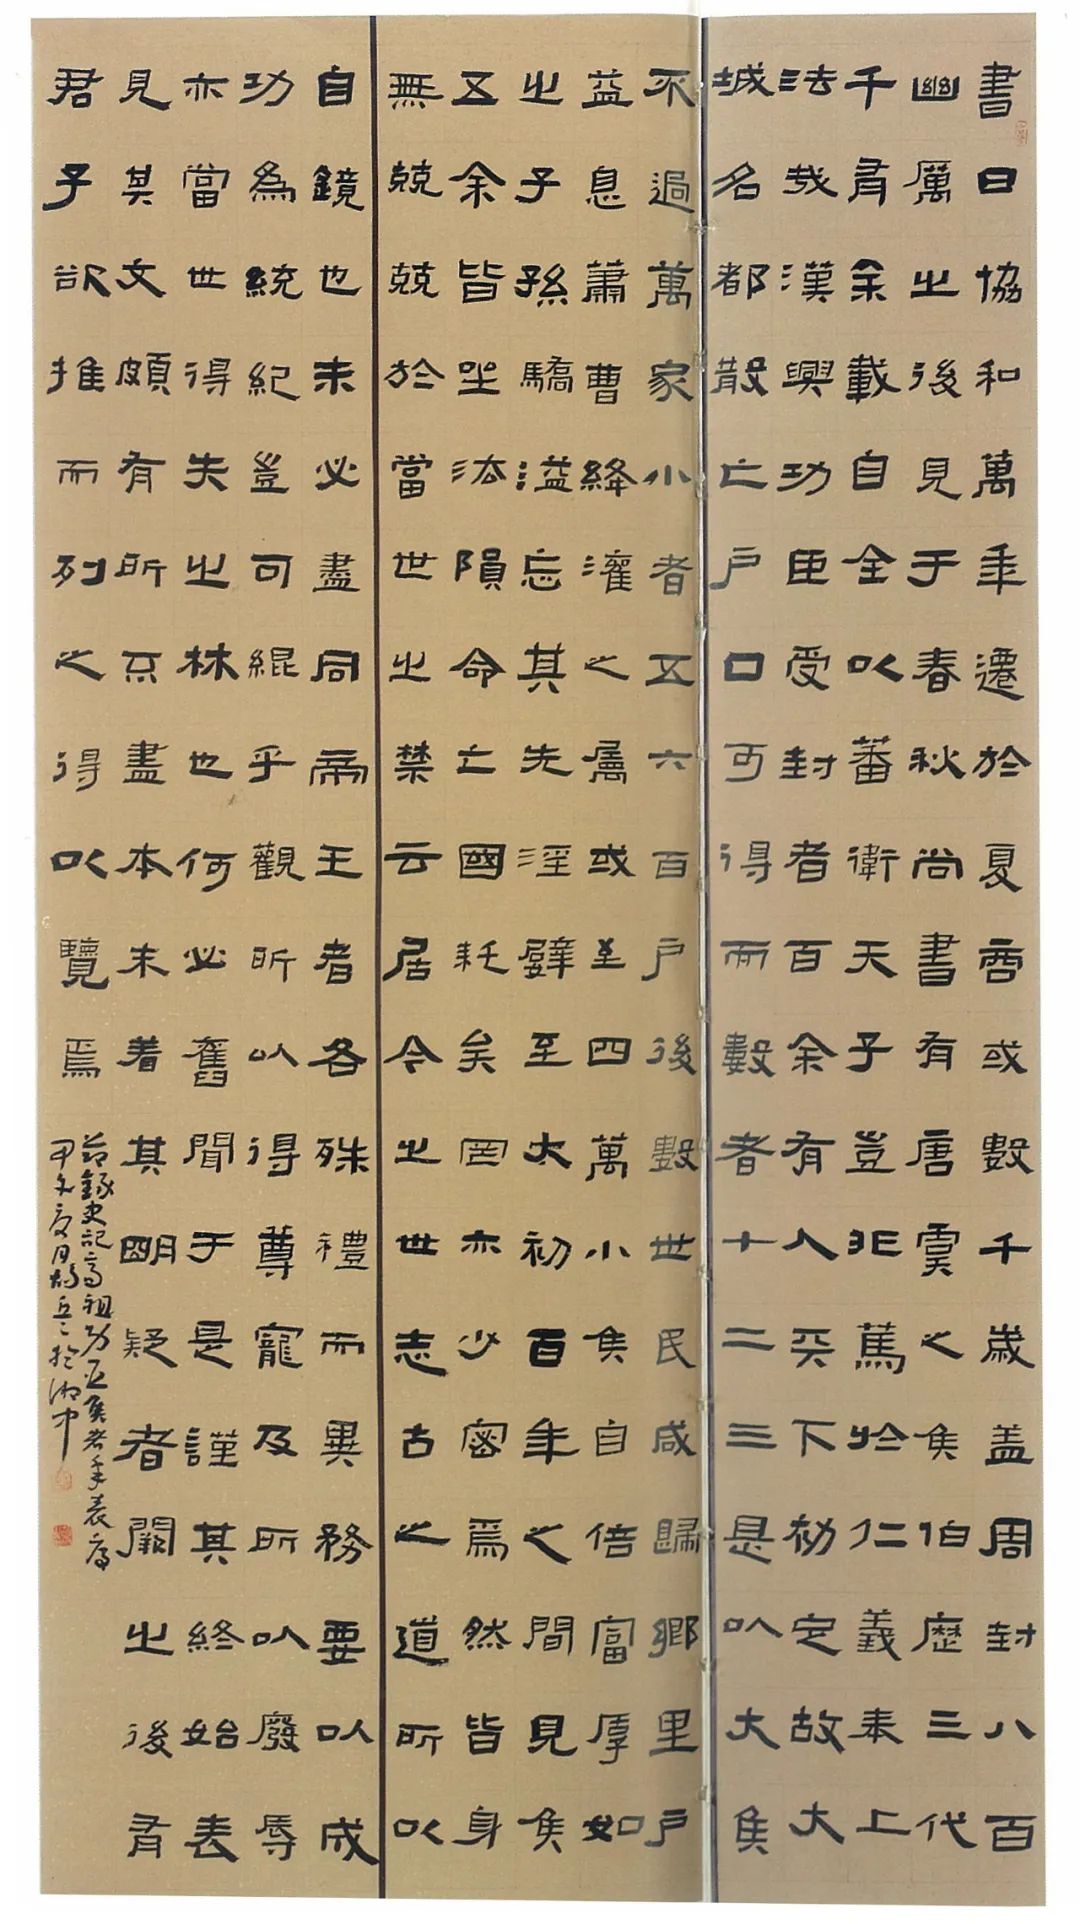 書曰協和萬年遷於夏商或數千歲盖周封八百
幽厲之後見于春秋尚書有唐虞之侯伯歷三代
千有余載自全以蕃衛天子豈非篤於仁義奉上
法哉漢興功臣受封者百余有人天下初定故大
城名都散亡户口可得而數者十二三是以大侯
不過萬家小者五六百户後數世民咸歸鄉里户
益息蕭曹絳灌之屬或至四萬小侯自倍富厚如
之子孫驕溢忘其先淫嬖至太初百年之間見侯
五余皆坐法隕命亡國耗矣罔亦少密焉然皆身
無兢兢於當世之禁云居今之世志古之道所以
自鏡也未必盡同帝王者各殊禮而異務要以成
功為統紀豈可緄乎觀所以得尊寵及所以廢辱
亦當世得失之林也何必舊聞于是謹其終始表
見其文頗有所不盡本末着其明疑者闕之後有
君子欲推而列之得以覽焉
節錄史記高祖功臣侯者年表序
甲午夏月於湘中